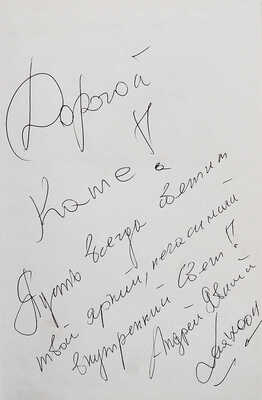 Дорогой
Кате!
Пусть всегда светит
твой яркий, негасимый
внутренний свет!
Андрей